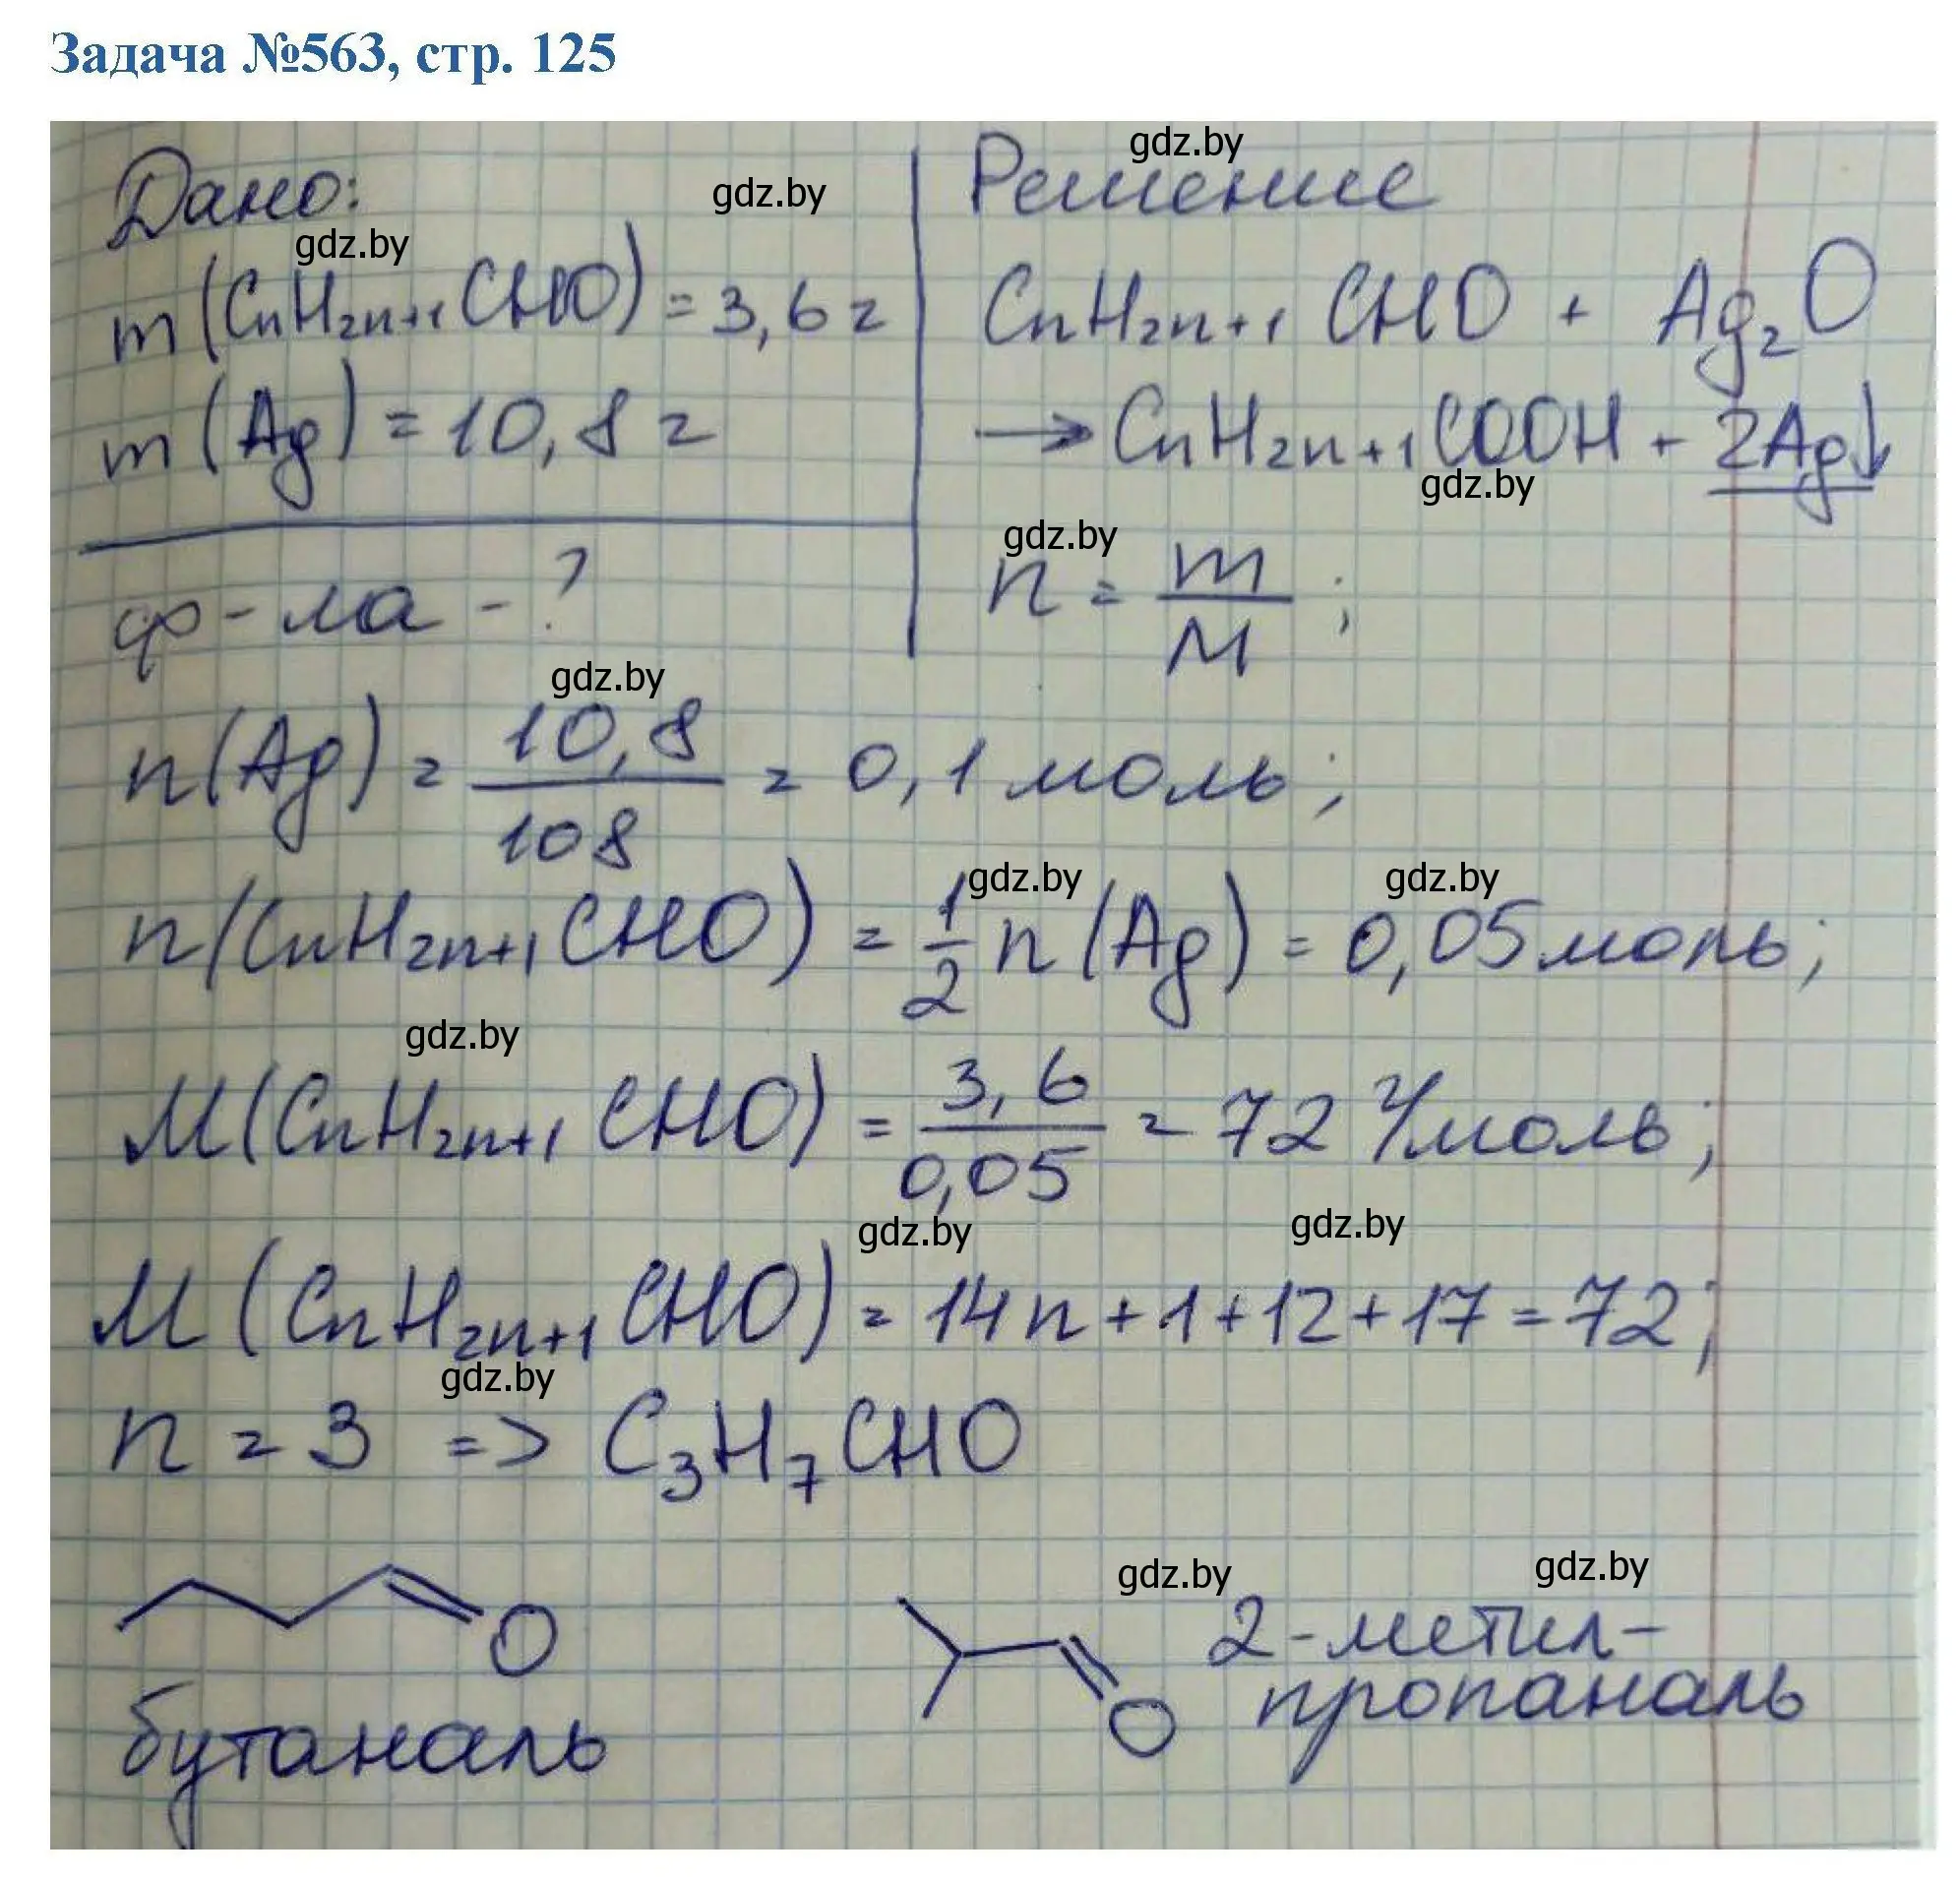 Задача №563, стр. 125
gdz.by
Дано:
gdz.by
Решение
gdz.by
m(CnH2n+1CHO) = 3,6 г
CnH2n+1CHO + Ag2O
m(Ag) = 10,8 г
→ CnH2n+1COOH + 2Ag↓
gdz.by
ф-ла - ?
gdz.by
n = m/M ;
gdz.by
n(Ag) = 10,8/108 = 0,1 моль ;
gdz.by
gdz.by
n(CnH2n+1CHO) = 1/2 n(Ag) = 0,05 моль ;
gdz.by
M(CnH2n+1CHO) = 3,6/0,05 = 72 г/моль ;
gdz.by
gdz.by
M(CnH2n+1CHO) = 14n + 1 + 12 + 17 = 72 ;
gdz.by
n = 3 => C3H7CHO
gdz.by
gdz.by
O
бутаналь
O
2-метил-
пропаналь